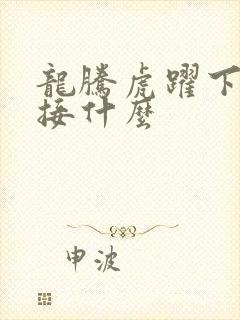 龍騰虎躍下
接什麼
申波